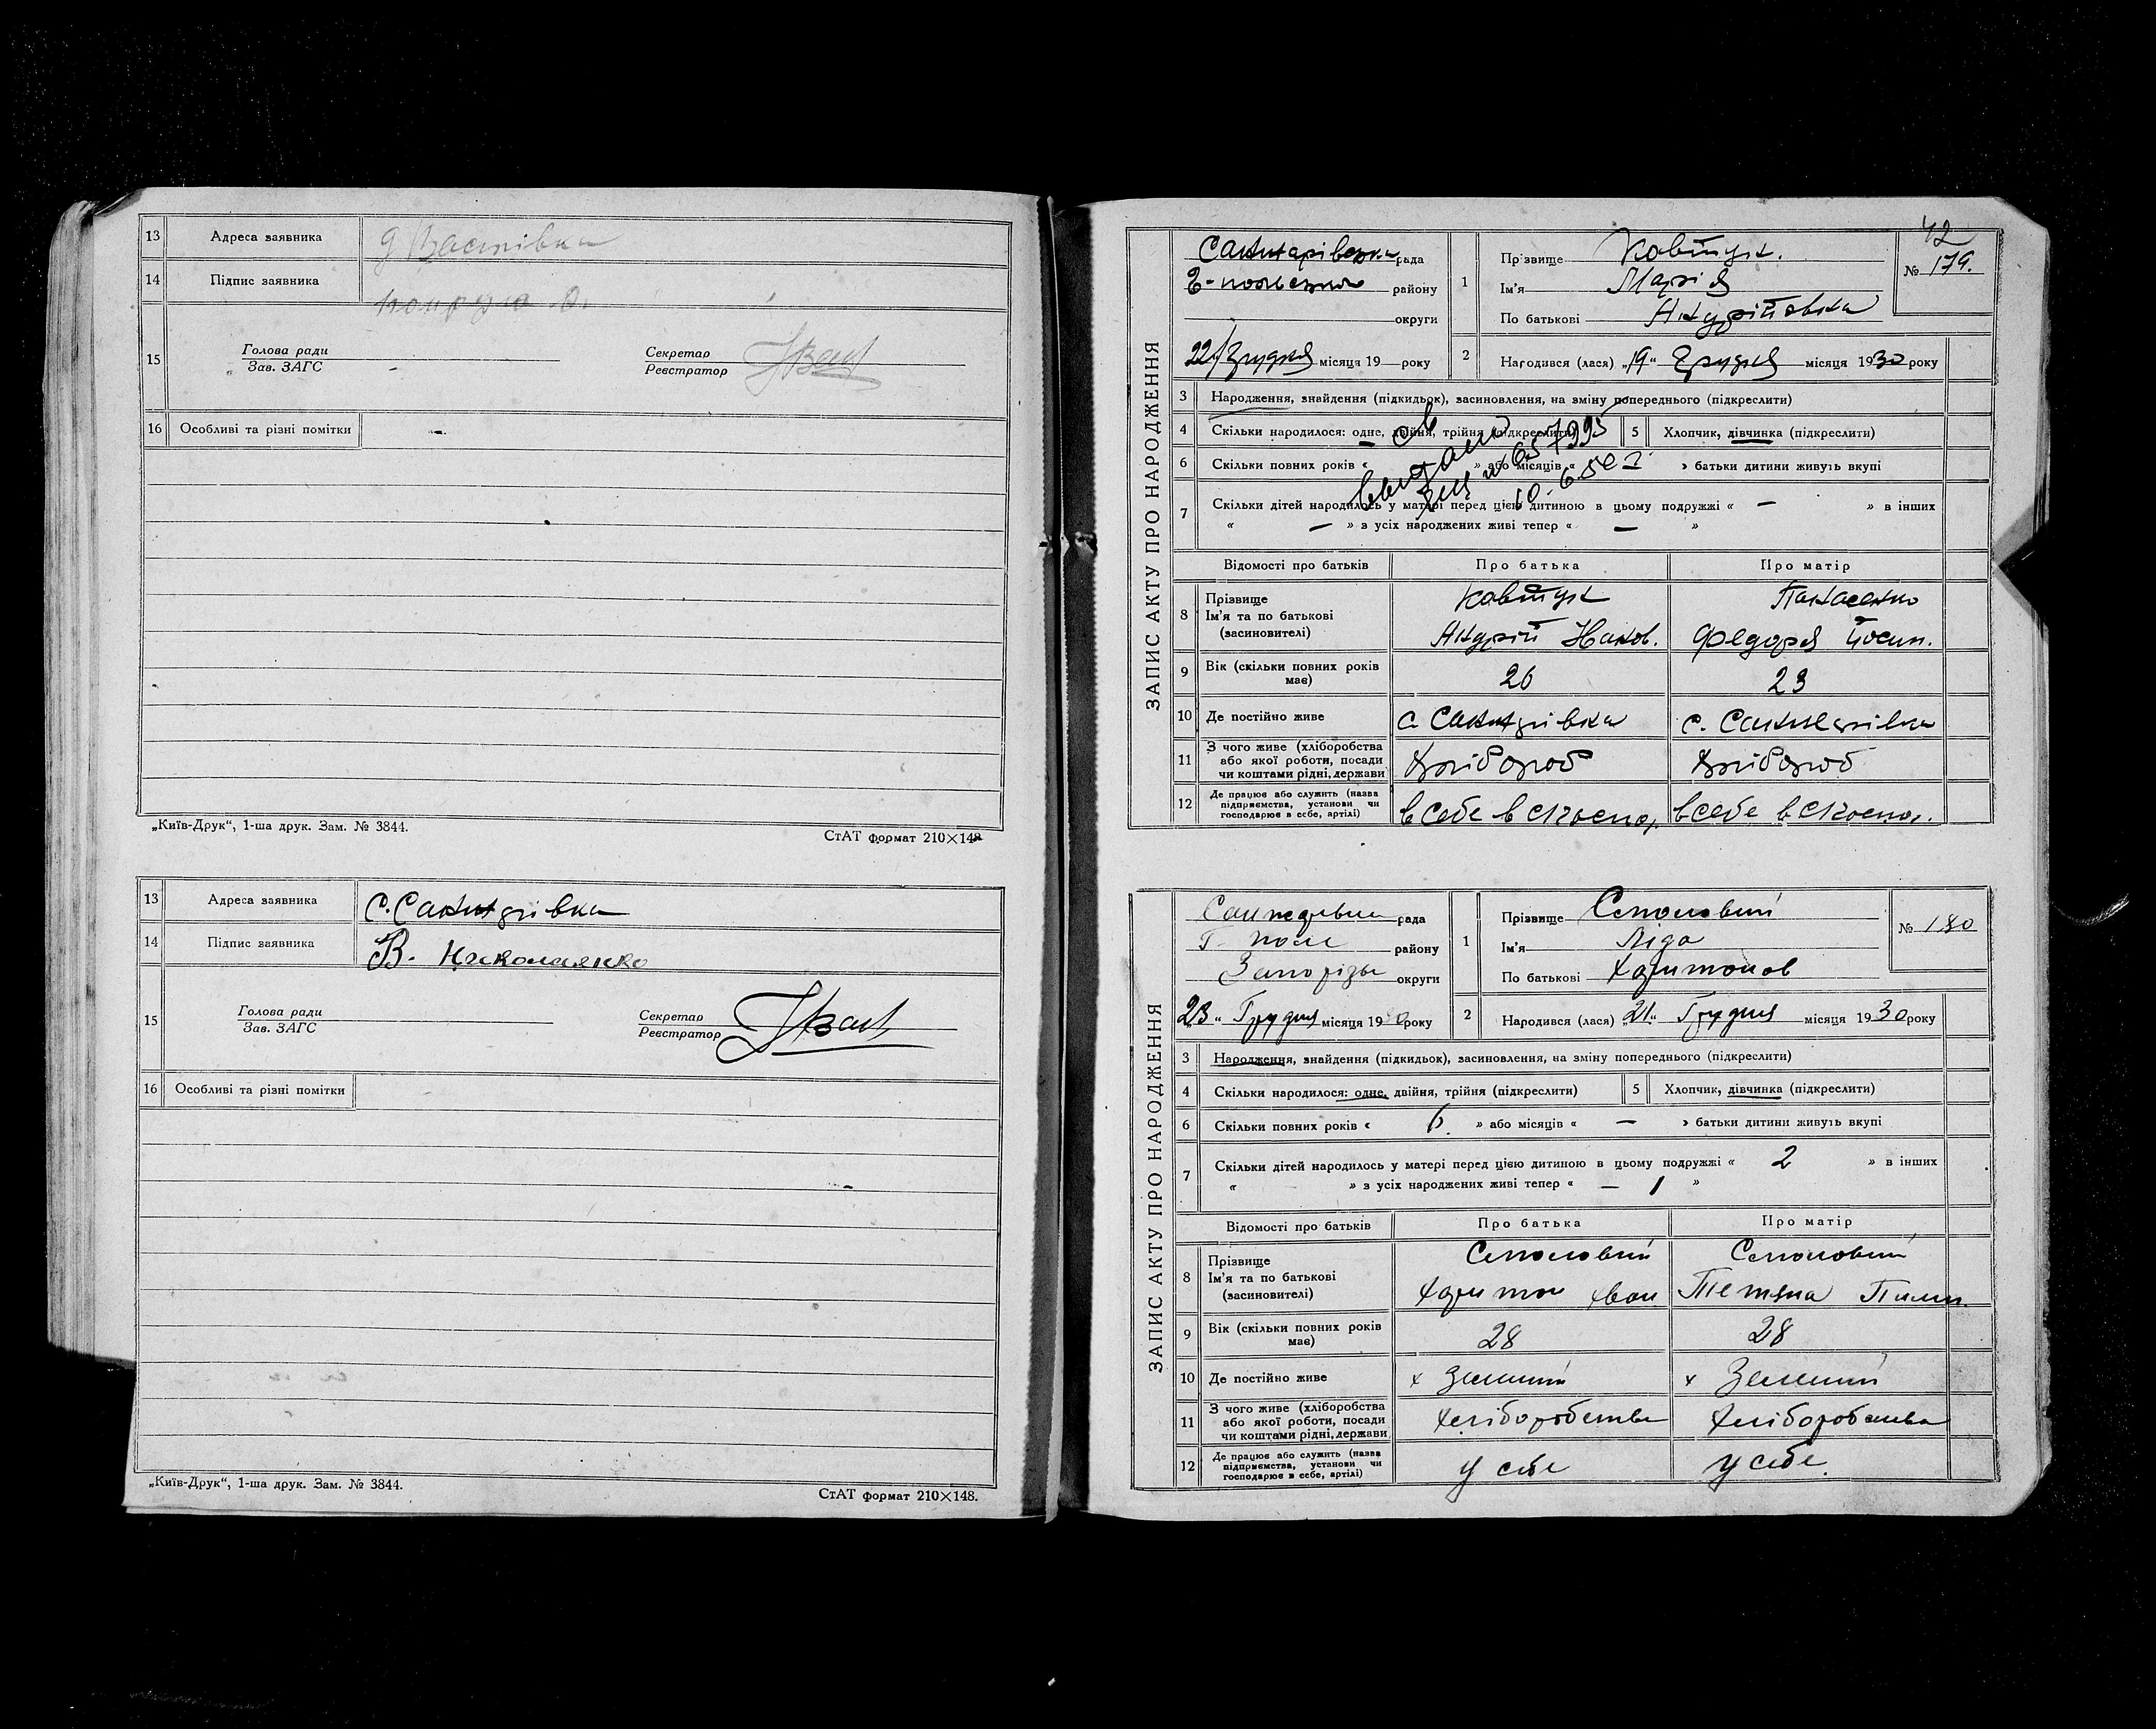 13 Адреса заявника
14 Підпис заявника
15 Голова ради Секретар
Зав. ЗАГС Реєстратор
16 Особливі та різні помітки
„Київ-Друк“, 1-ша друк. Зам. № 3844.
СтАТ формат 210×148
13 Адреса заявника
14 Підпис заявника В. Николаянко
15 Голова ради Секретар
Зав. ЗАГС Реєстратор
16 Особливі та різні помітки
„Київ-Друк“, 1-ша друк. Зам. № 3844.
СтАТ формат 210×148.
42
ЗАПИС АКТУ ПРО НАРОДЖЕННЯ
рада 1 Прізвище Ковтун № 179.
району Ім'я Марія
округи По батькові Андріївна
22/Грудня місяця 19 року 2 Народився (лася) „19“ Грудня місяця 1930 року
3 Народження, знайдення (підкидьок), засиновлення, на зміну попереднього (підкреслити)
4 Скільки народилося: одне, двійня, трійня (підкреслити) 5 Хлопчик, дівчинка (підкреслити)
6 Скільки повних років « » або місяців « » батьки дитини живуть вкупі
7 Скільки дітей народилось у матері перед цією дитиною в цьому подружжі « — » в інших
« — » з усіх народжених живі тепер « — »
Відомості про батьків Про батька Про матір
8 Прізвище Ковтун Панасенко
Ім'я та по батькові Андрій Федора Йосип.
(засновителі)
9 Вік (скільки повних років має) 26 23
10 Де постійно живе
11 З чого живе (хліборобства або якої роботи, посади чи коштами рідні, держави Хлібороб Хлібороб
12 Де працює або служить (назва підприємства, установи чи господарює в себе, артілі) в себе в в себе в
ЗАПИС АКТУ ПРО НАРОДЖЕННЯ
рада 1 Прізвище № 180
Г- поле району Ім'я Ліда
округи По батькові Харитонов
23 „ Грудня місяця 1930 року 2 Народився (лася) „21“ Грудня місяця 1930 року
3 Народження, знайдення (підкидьок), засиновлення, на зміну попереднього (підкреслити)
4 Скільки народилося: одне, двійня, трійня (підкреслити) 5 Хлопчик, дівчинка (підкреслити)
6 Скільки повних років « 6 » або місяців « — » батьки дитини живуть вкупі
7 Скільки дітей народилось у матері перед цією дитиною в цьому подружжі « 2 » в інших
« » з усіх народжених живі тепер « — 1 »
Відомості про батьків Про батька Про матір
8 Прізвище
Ім'я та по батькові Харитон Іван Тетяна Пилип.
(засиновителі)
9 Вік (скільки повних років має) 28 28
10 Де постійно живе х Зелений х Зелений
11 З чого живе (хліборобства або якої роботи, посади чи коштами рідні, держави Хліборобства Хліборобства
12 Де працює або служить (назва підприємства, установи чи господарює в себе, артілі) У себе У себе